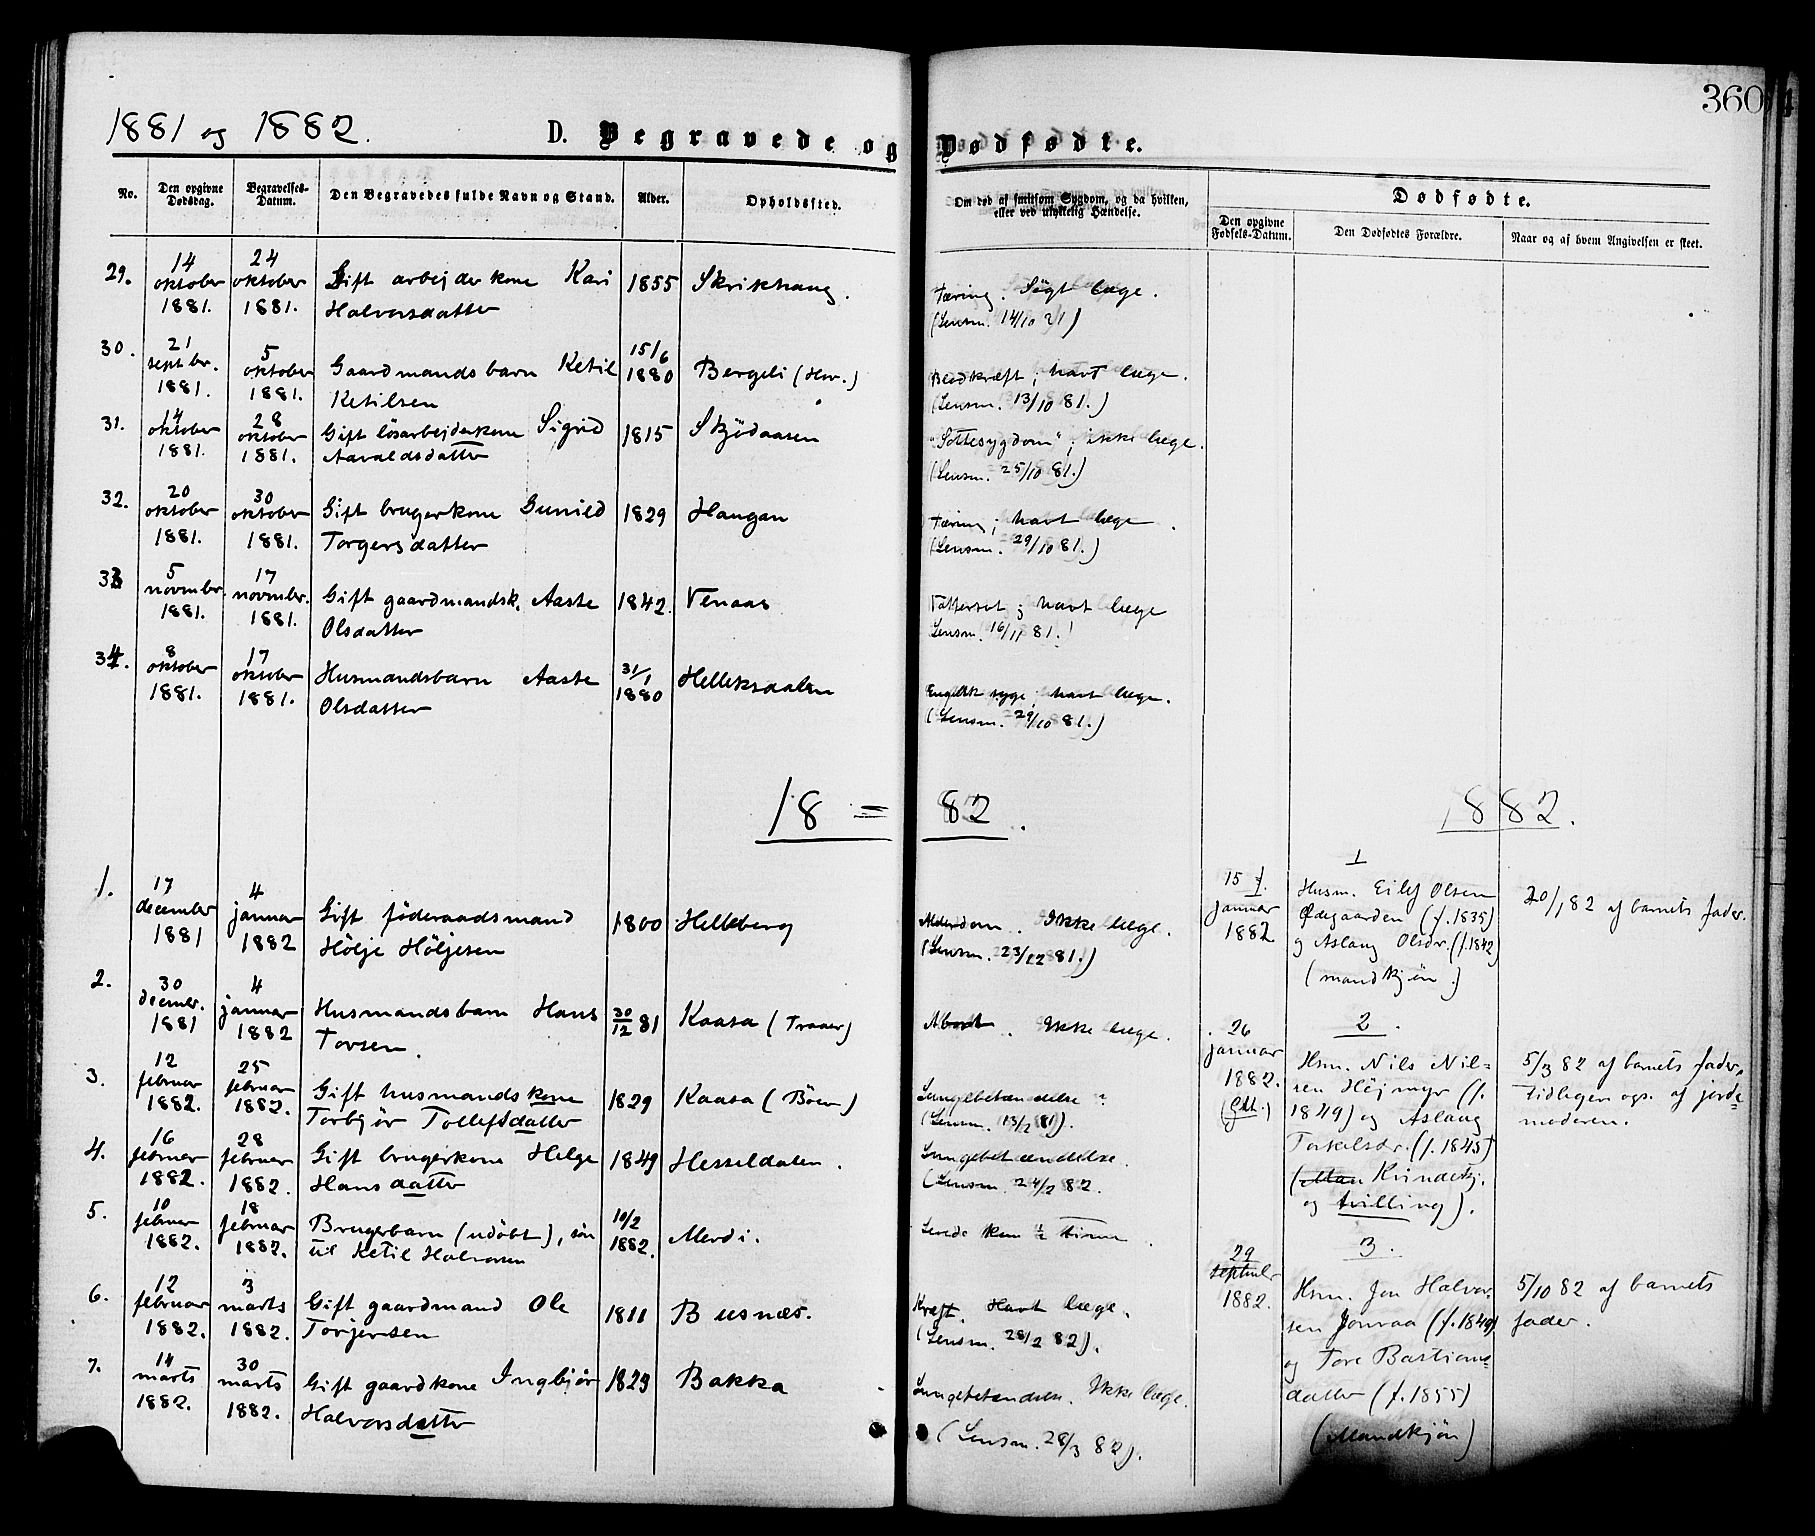 360
1881 og 1882.
D. Begravede og Dødfødte.
No.
Den opgivne Dødsdag.
Begravelses-Datum.
Den Begravedes fulde Navn og Stand.
Alder.
Opholdssted.
Om død af smitsom Sygdom, og da hvilken, eller ved ulykkelig Hændelse.
Dødfødte.
Den opgivne Fødsels-Datum.
Den Dødfødtes Forældre.
Naar og af hvem Angivelsen er skeet.
29. 14 oktober 1881. 24 oktober 1881. Gift arbejderkone Kari Halvorsdatter 1855 Skrikhaug. Tæring. Søgt læge. (Lensm. 14/10 81)
30. 21 septbr. 1881. 5 oktober 1881. Gaardmandsbarn Ketil Ketilsen 15/6 1880 Bergeli (Hvr.) Blodkræft; havt læge. (Lensm. 13/10 81.)
31. 14 oktober 1881. 28 oktober 1881. Gift løsarbejderkone Sigrid Aavaldsdatter 1815 Skjödaasen "Sottesygdom"; ikke læge. (Lensm. 25/10 81.)
32. 20 oktober 1881. 30 oktober 1881. Gift brugerkone Gunild Torgersdatter 1829 Haugan Tæring; havt læge. (Lensm. 29/10 81.)
33 5 novmbr. 1881. 17 novmbr. 1881. Gift gaardmandsk. Aaste Olsdatter 1842. Venaas Vattersot; havt læge Lensm. 16/11 81.
34. 8 oktober 1881. 17 oktober 1881. Husmandsbarn Aaste Olsdatter 31/1 1880 Helleksdalen Engelsk syge; havt læge. (Lensm. 29/10 81.)
18 = 82.
1882.
1. 17 december 1881 4 januar 1882 Gift föderaadsmand Hölje Höljesen 1800 Helleberg Alderdom. Ikke læge. (Lensm. 23/12 81.)
2. 30 decmbr. 1881 4 januar 1882 Husmandsbarn Hans Tovsen. 30/12 81 Kaasa (Traaer) Abort. Ikke læge.
3. 12 februar 1882. 25 februar 1882. Gift husmandskone Torbjør Tollefsdatter 1829 Kaasa (Böen) Lungebetændelse (Lensm. 13/2 81).
4. 16 februar 1882. 28 februar 1882. Gift brugerkone Helge Hansdatter 1849 Hesseldalen. Lungebetændelse. (Lensm. 24/2 82.
5. 10 februar 1882. 18 februar 1882. Brugerbarn (udöbt), søn til Ketil Halvorsen 10/2 1882. Merdi. Levede kun ½ time.
6. 12 februar 1882. 3 marts 1882. Gift gaardmand Ole Torjersen 1811 Busnæs. Kræft. Havt læge. (Lensm. 28/2 82).
7. 14 marts 1882. 30 marts 1882. Gift gaardkone Ingbjør Halvorsdatter 1829 Bakka Lungebetændelse. Ikke læge. (Lensm. 28/3 82).
1
15 januar 1882
Husm. Eilef Olsen
Ødegaarden (f. 1835)
og Aslaug Olsdr. (f. 1842)
(mandkjön.)
20/1 82 af barnets fader.
2.
26 januar 1882.
Hsm. Nils Nil-
sen Höjmyr (f.
1849) og Aslaug
Torkelsdr. (f. 1845)
(Man Kvindekj.
og tvilling).
5/3 82 af barnets fader,
tidligen ogs. af jorde-
moderen.
3.
29 septmbr 1882.
Hsm. Jon Halvor-
sen Jonraa (f. 1849)
og Tore Bastians-
datter (f. 1855)
(Mandkjön)
5/10 82 af barnets
fader.